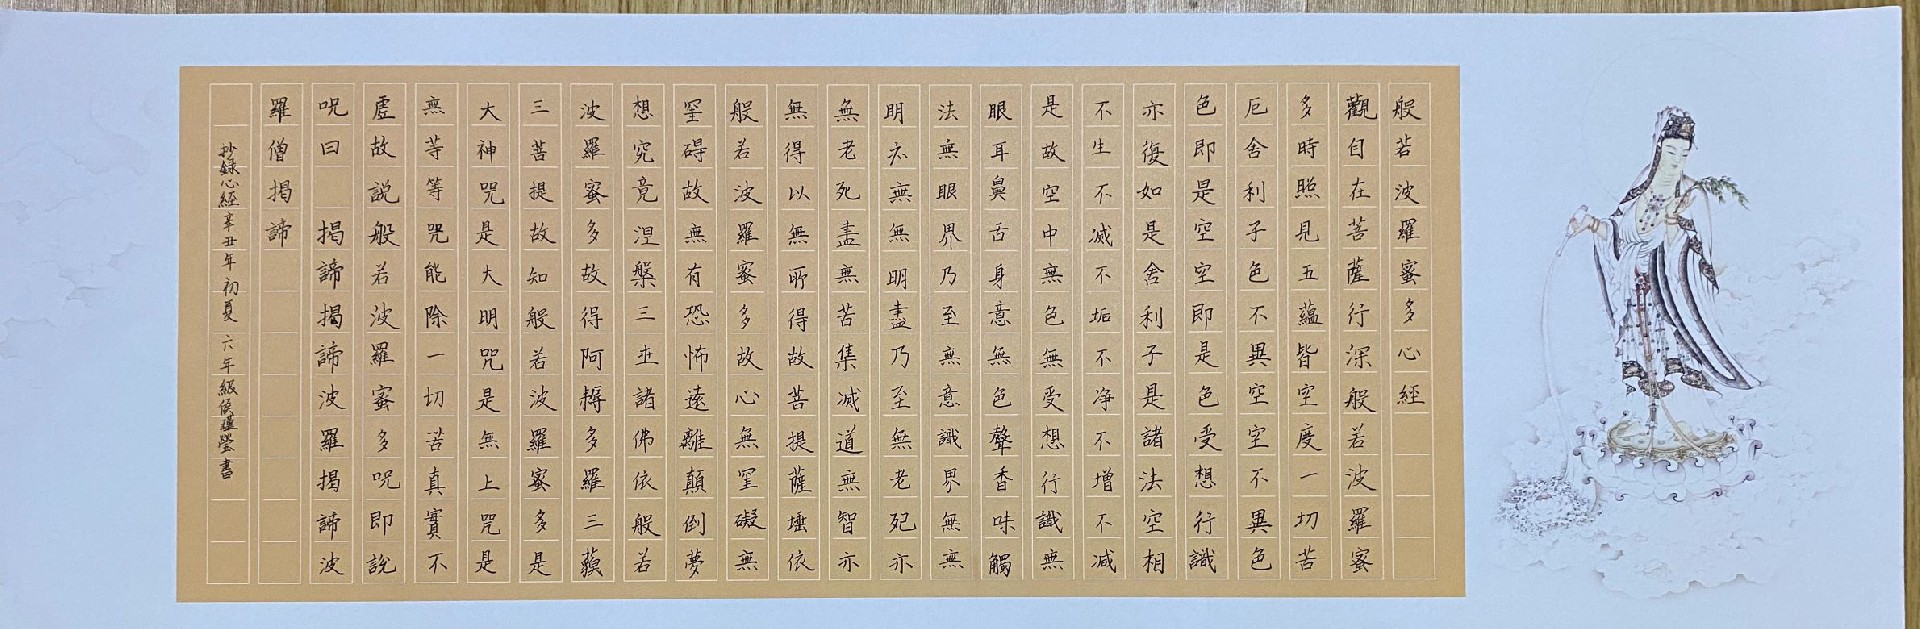 般若波羅蜜多心經
觀自在菩薩行深般若波羅蜜
多時照見五蘊皆空度一切苦
厄舍利子色不異空空不異色
色即是空空即是色受想行識
亦復如是舍利子是諸法空相
不生不滅不垢不净不增不减
是故空中無色無受想行識無
眼耳鼻舌身意無色聲香味觸
法無眼界乃至無意識界無無
明亦無無明盡乃至無老死亦
無老死盡無苦集滅道無智亦
無得以無所得故菩提薩埵依
般若波羅蜜多故心無罣礙無
罣碍故無有恐怖遠離顛倒夢
想究竟涅槃三世諸佛依般若
波羅蜜多故得阿耨多羅三藐
三菩提故知般若波羅蜜多是
大神咒是大明咒是無上咒是
無等等咒能除一切苦真實不
虛故說般若波羅蜜多呪即說
呪曰 揭諦揭諦波羅揭諦波
羅僧揭諦
抄録心經辛丑年初夏 六年級侯瑩書